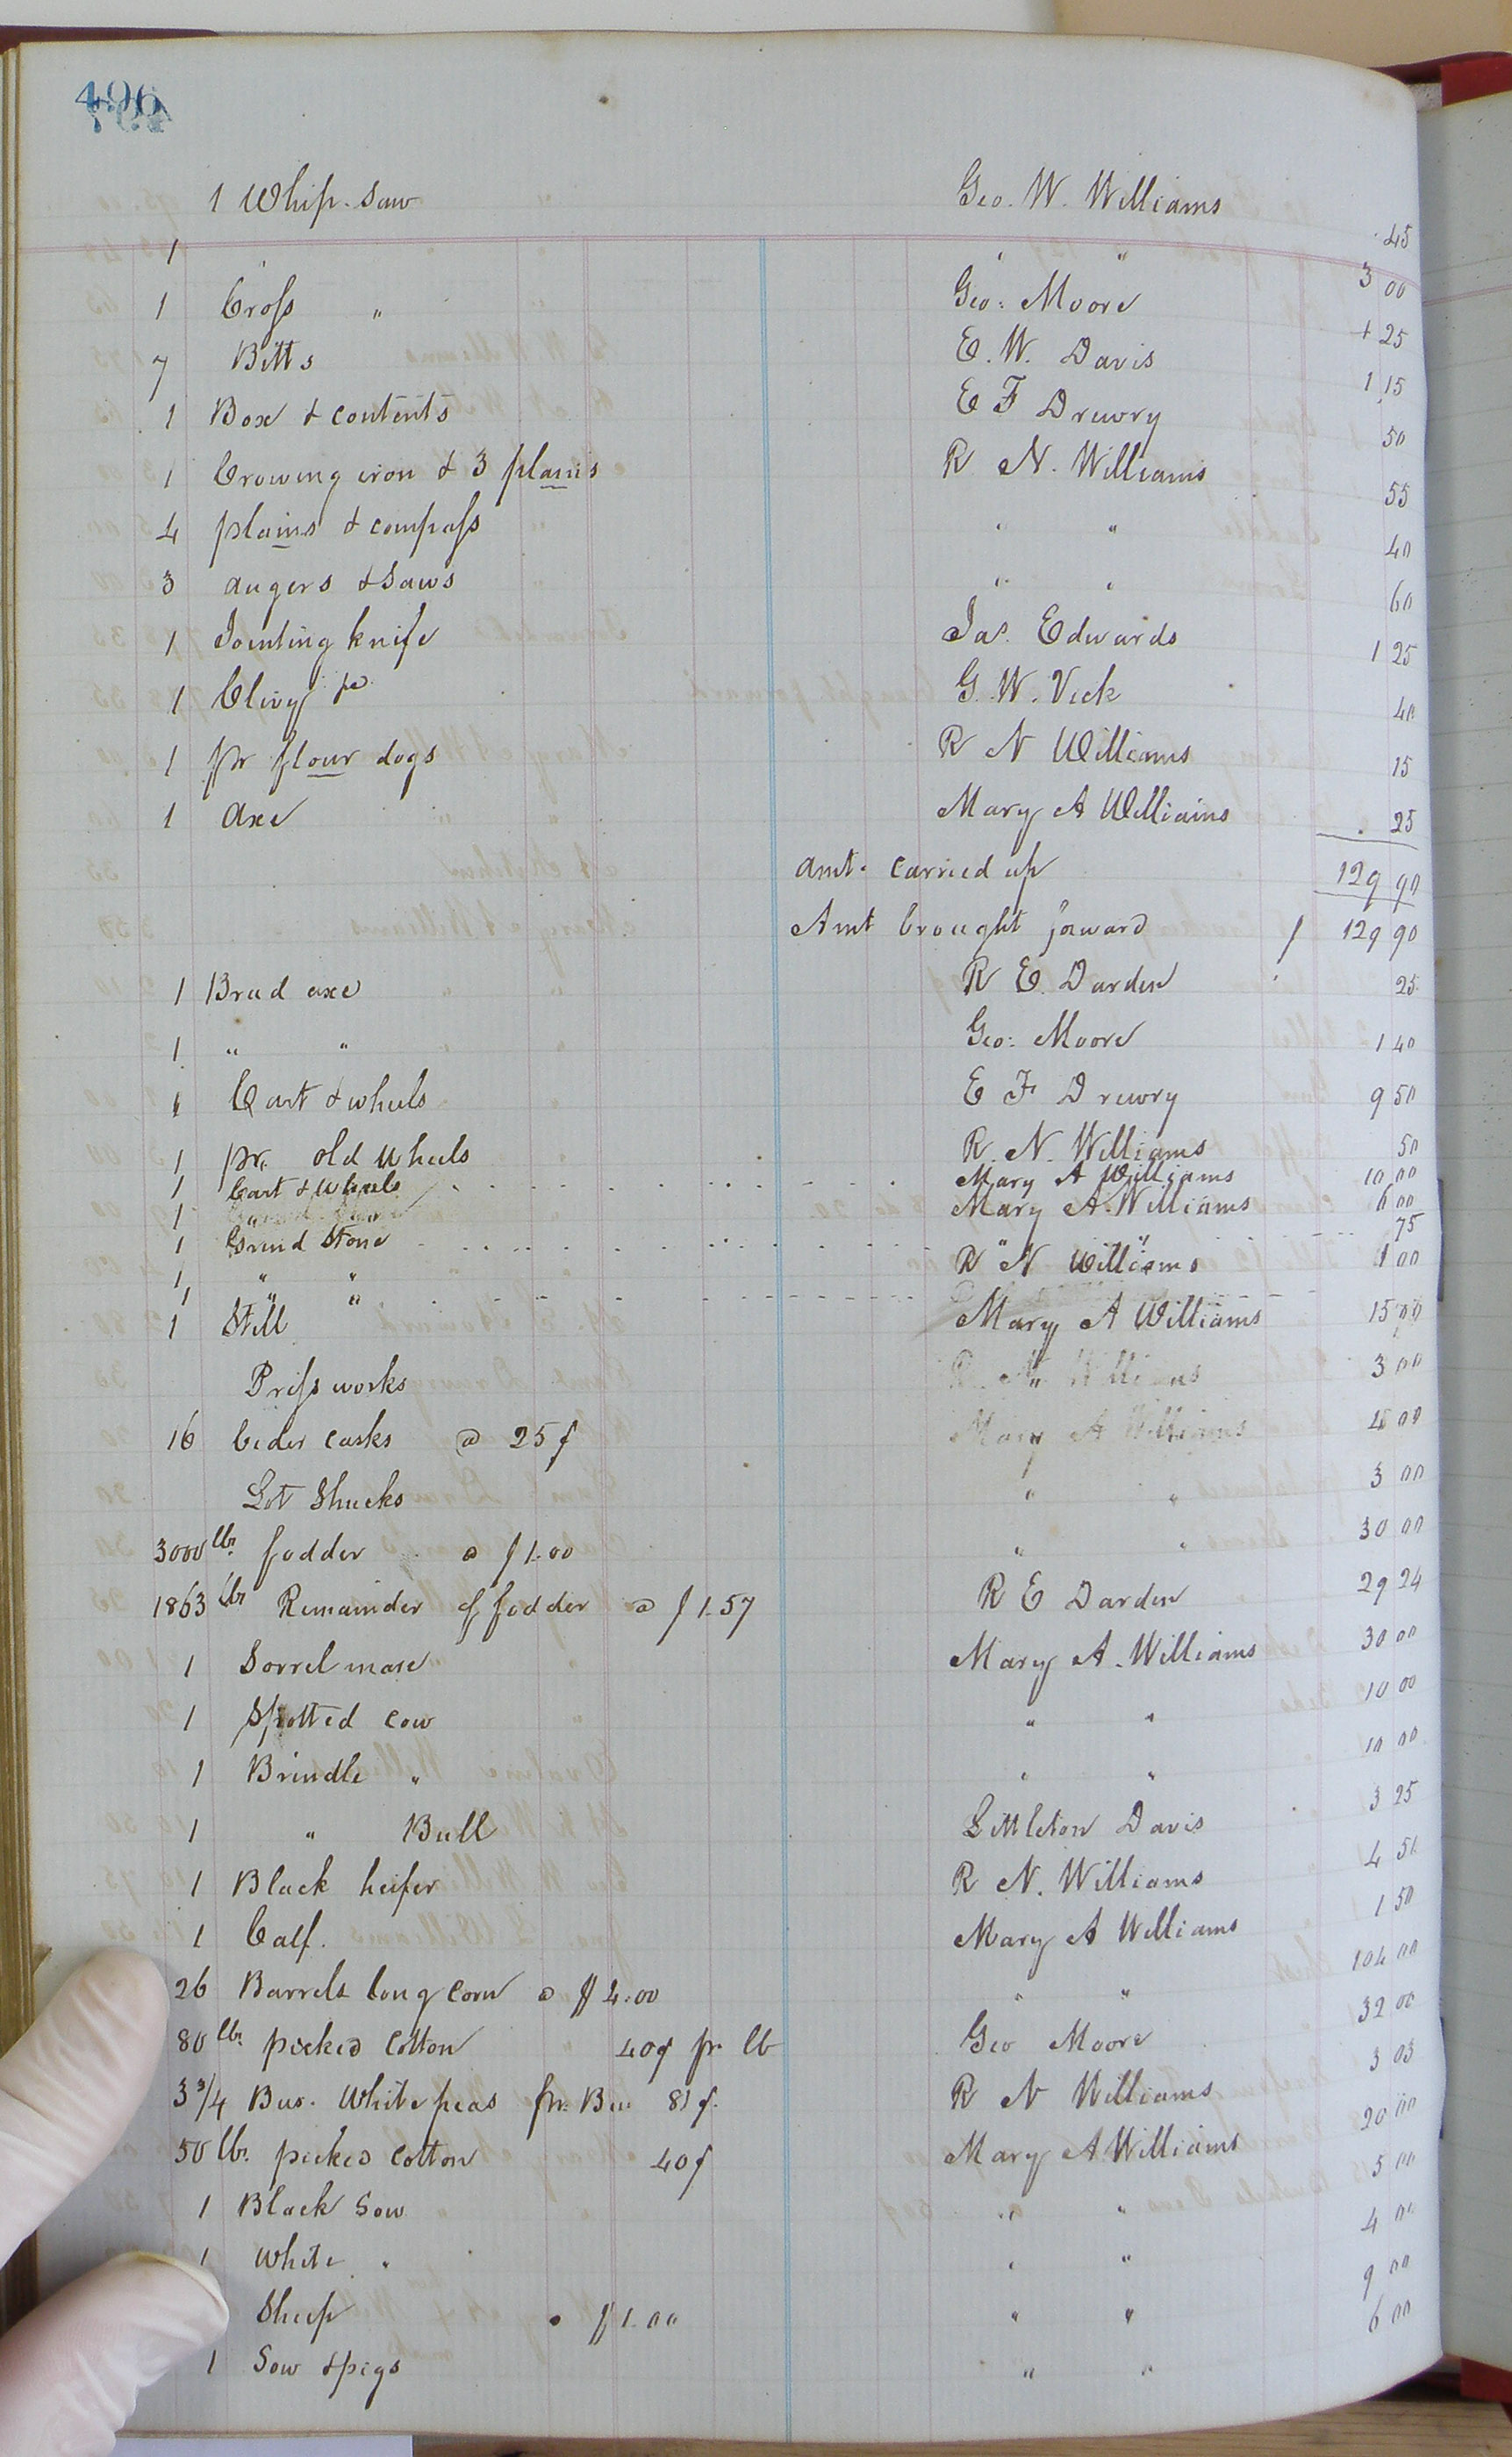 496
1 Whip. Saw Geo. W. Williams 45
1 " " 3 00
1 Cross " Geo: Moore 25
7 Bitts E. W. Davis 1 15
1 Box & contents E F Drewry 50
1 Crowing iron & 3 plains R N. Williams 55
4 plains & compass " " 40
3 augers & Saws " " 60
1 Jointing knife Jas. Edwards 1 25
1 G. W. Vick 40
1 pr flour dogs R N Williams 15
1 Axe Mary A Williams 25
Amt. Carried up 129 90
Amt brought forward $ 129 90
1 Brad axe R E. Darden 25
1 " " Geo: Moore 1 40
1 Cart & wheels E F Drewry 9 50
1 pr. old wheels R. N. Williams 50
1 Cart & Wheels Mary A Williams 10 00
1 Mary A. Williams 6 00
1 Grind Stone " " 75
1 " " R N Williams 1 00
1 " "
1 Still Mary A Williams 15 00
Press works R. N. Williams 3 00
16 Cider casks @ 25¢ Mary A Williams 00
Lot Shucks " " 3 00
3000 lbs. fodder @ $1.00 " " 30 00
1863 lbs Remainder of fodder @ $1.57 R E Darden 29 24
1 Sorrel mare Mary A. Williams 30 00
1 Spotted Cow " " 10 00
1 Brindle " " " 10 00
1 " Bull Littleton Davis 3 25
1 Black heifer R N. Williams 4 51
1 Calf. Mary A Williams 1 50
26 Barrels long Corn @ $4.00 " " 104 00
80 lbs. picked Cotton 40¢ pr lb Geo Moore 32 00
3 3/4 Bus. White peas pr. Bu 81¢. R N Williams 3 03
50 lbs. picked Cotton 40¢ Mary A Williams 20 00
1 Black Sow " " 5 00
1 White " " " 4 00
Sheep @ $1.00 " " 9 00
1 Sow & pigs " " 6 00